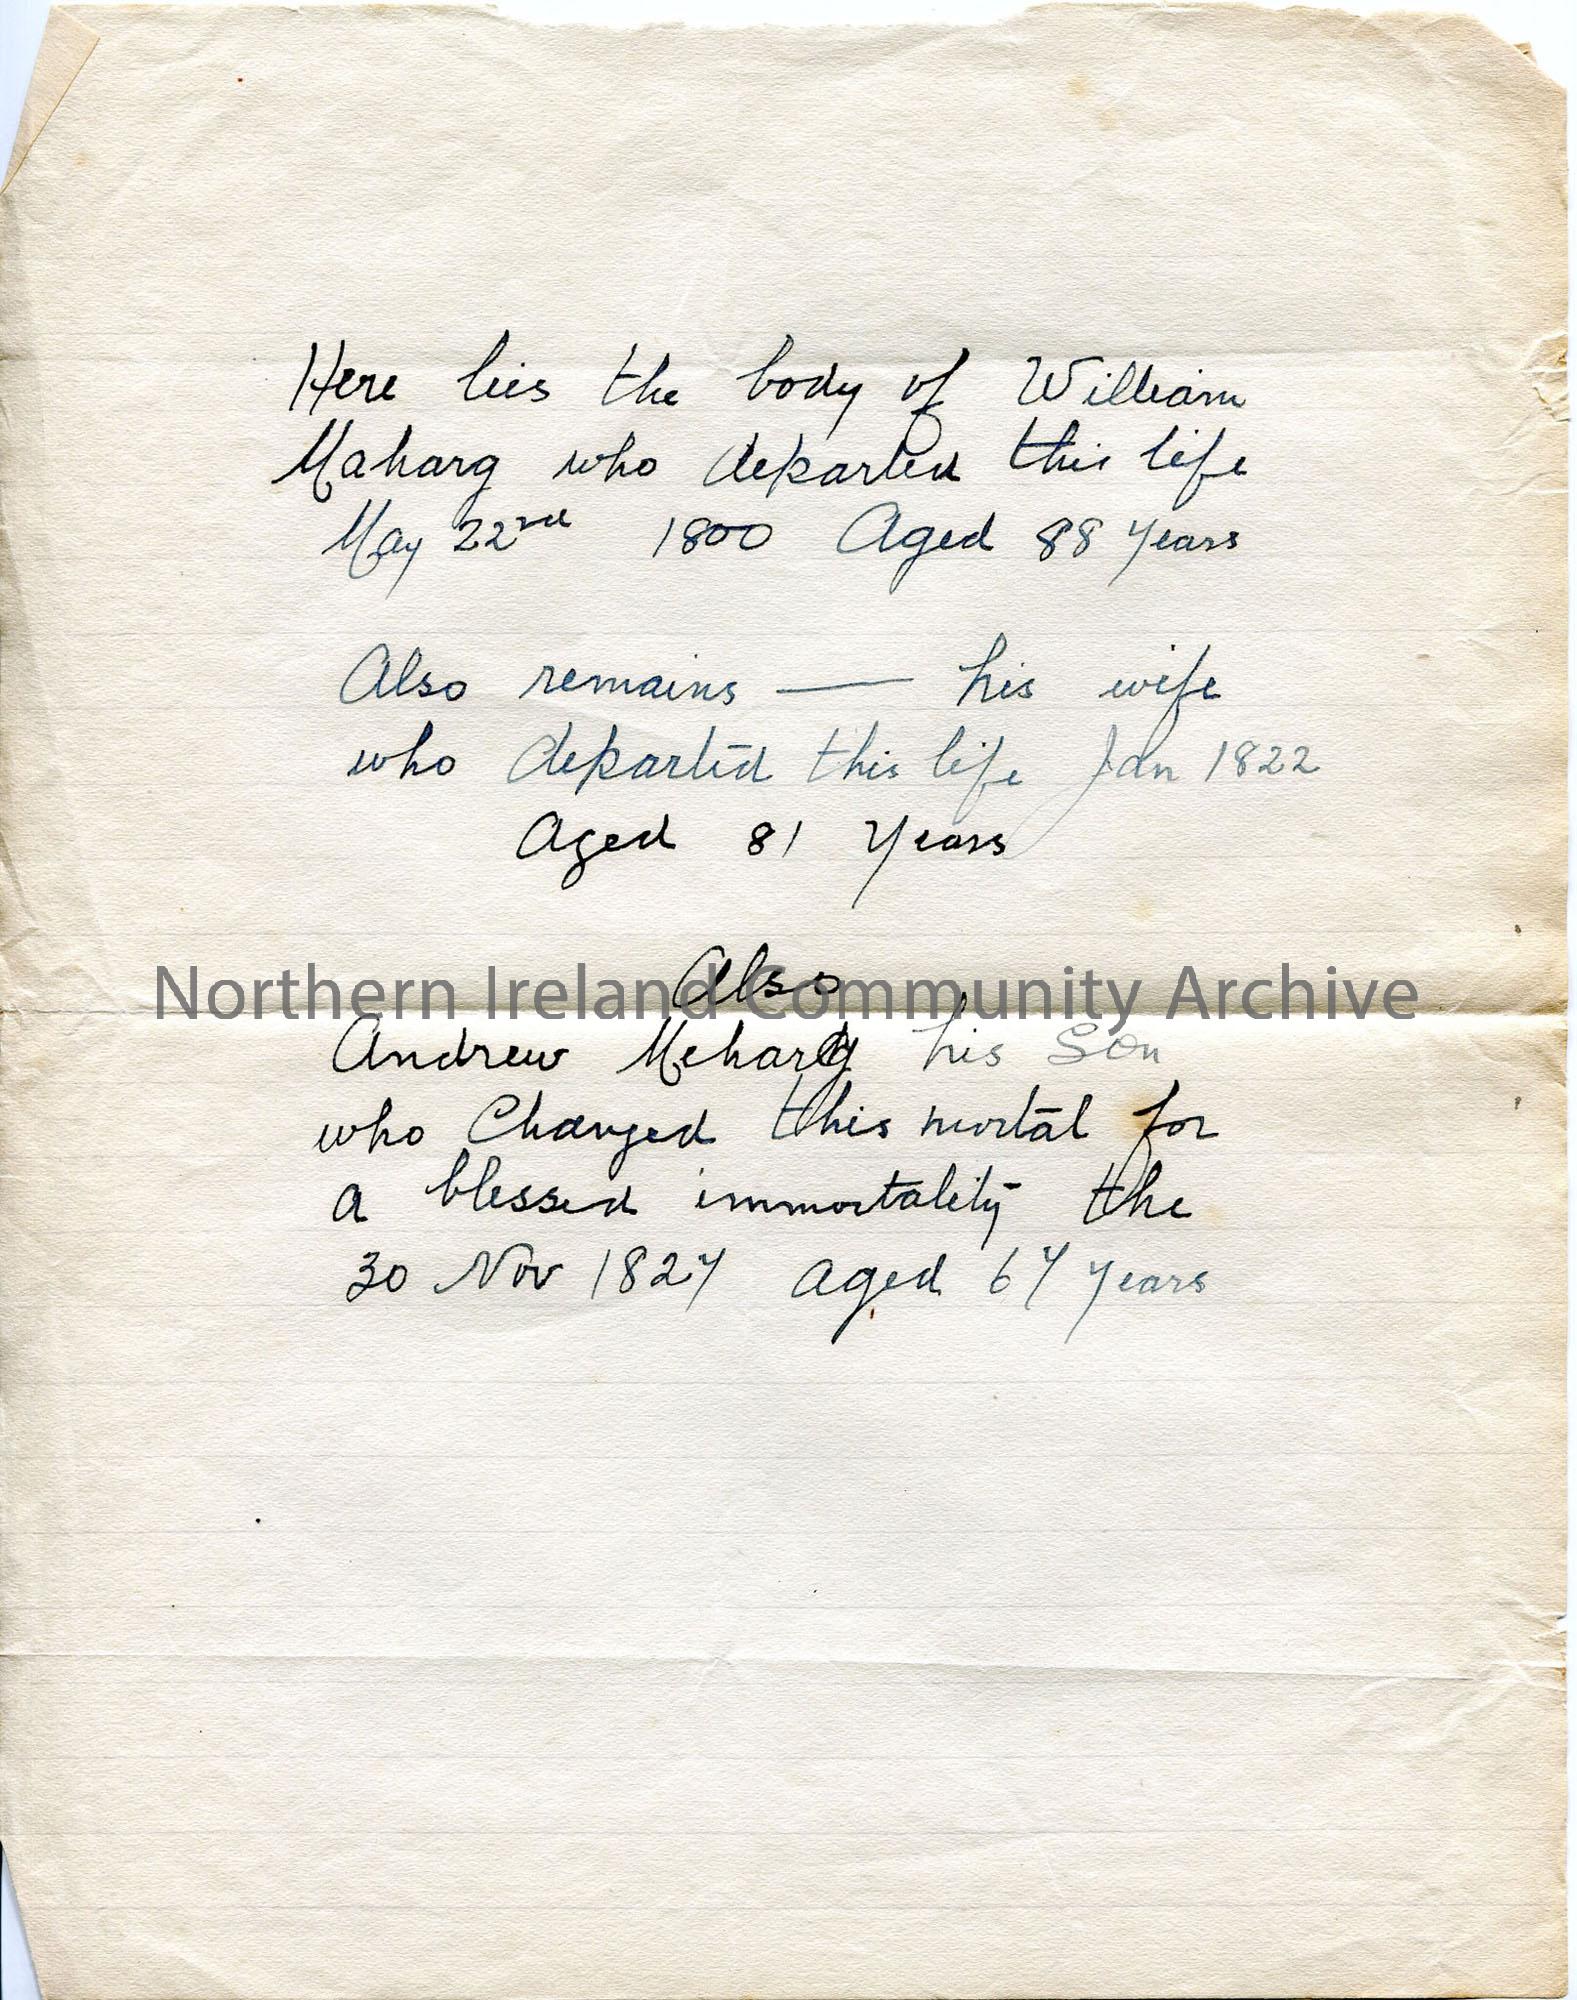 Here lies the body of William
Maharg who departed this life
May 22nd 1800 Aged 88 years
Also remains — his wife
who departed this life Jan 1822
Aged 81 Years
Also
Northern Ireland Community Archive
Andrew Meharg his Son
who Changed this mortal for
a blessed immortality the
30 Nov 1827 aged 67 years